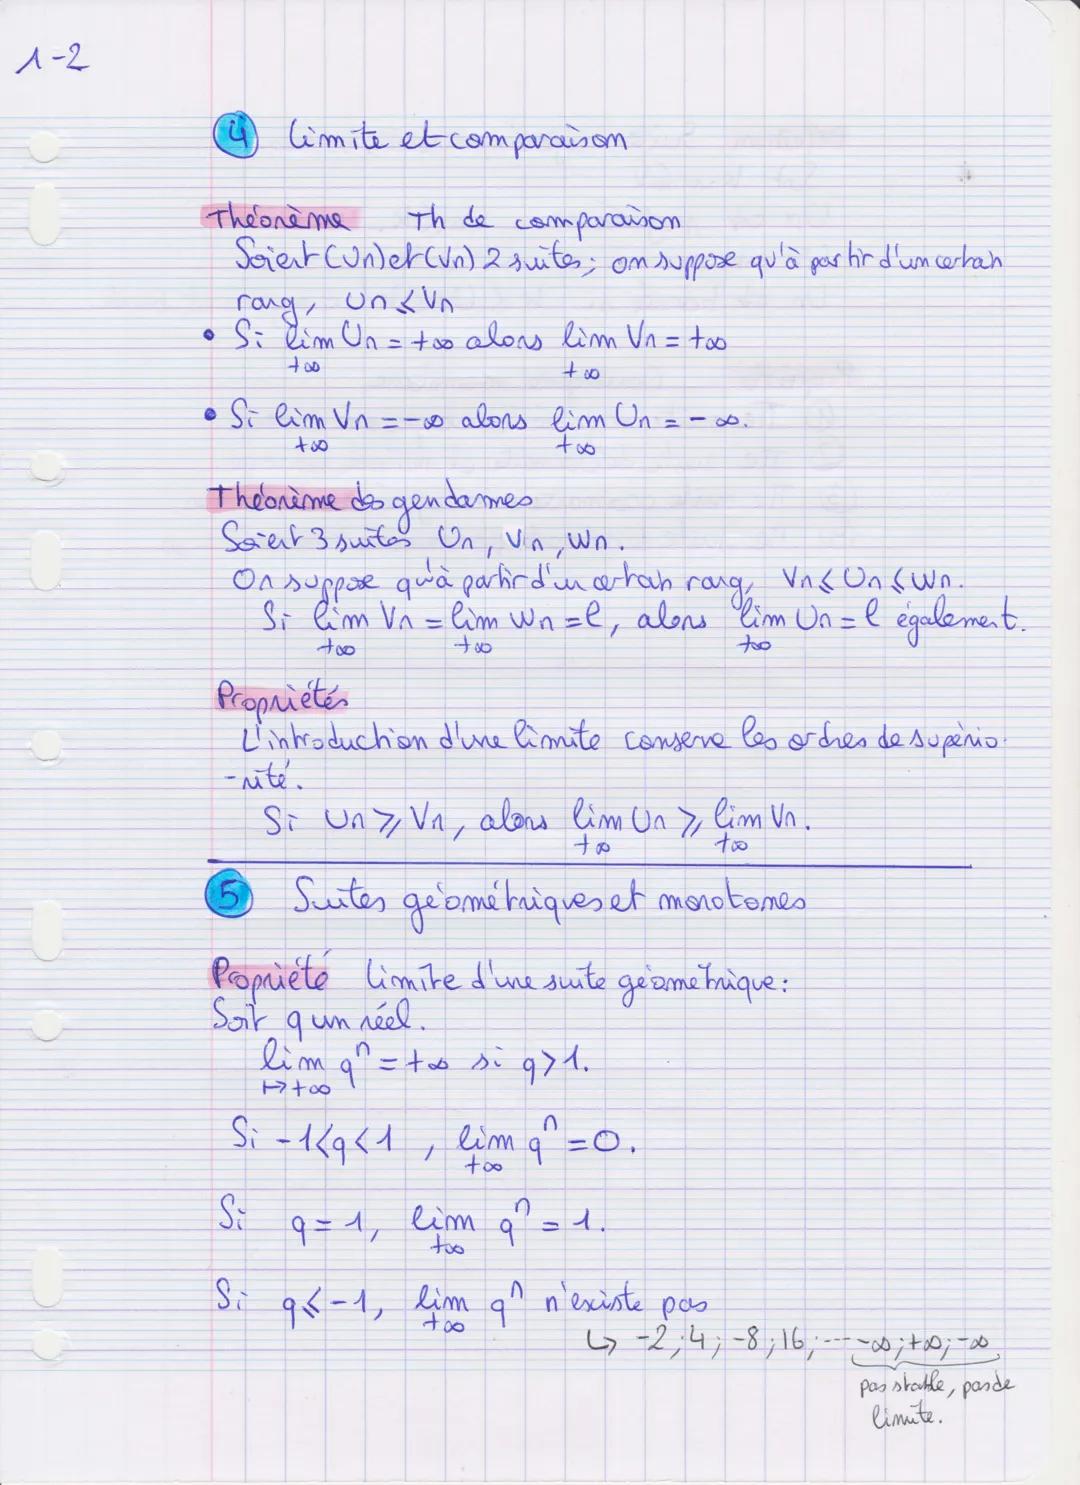 1-2
4 Limite et comparaison
Théorème Th de comparaison
Soient (Un) et (Vn) 2 suites; on suppose qu'à partir d'un certain
rang, Un ⩽ Vn
• Si lim Un = +∞ alors lim Vn = +∞
+∞ +∞
• Si lim Vn = -∞ alors lim Un = -∞.
+∞ +∞
Théorème des gendarmes
Soient 3 suites Un, Vn, Wn.
On suppose qu'à partir d'un certain rang, Vn ⩽ Un ⩽ Wn.
Si lim Vn = lim Wn = l, alors lim Un = l également.
+∞ +∞ +∞
Propriétés
L'introduction d'une limite conserve les ordres de supério-
-rité.
Si Un ⩾ Vn, alors lim Un ⩾ lim Vn.
+∞ +∞
5 Suites géométriques et monotones
Propriété limite d'une suite géométrique:
Soit q un réel.
lim qⁿ = +∞ si q > 1.
↦ +∞
Si -1 < q < 1, lim qⁿ = 0.
+∞
Si q = 1, lim qⁿ = 1.
+∞
Si q ⩽ -1, lim qⁿ n'existe pas
+∞
↳ -2; 4; -8; 16; ---- -∞; +∞; -∞
pas stable, pas de
limite.